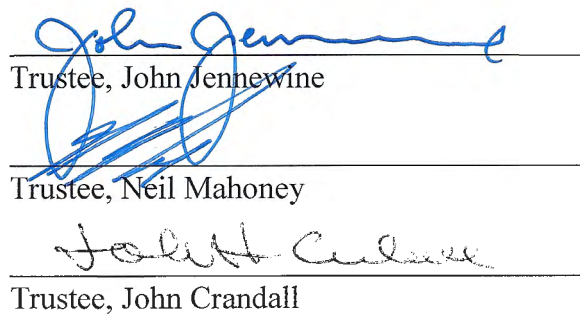 John Jennewine
Trustee, John Jennewine
Trustee, Neil Mahoney
John H Crandall
Trustee, John Crandall